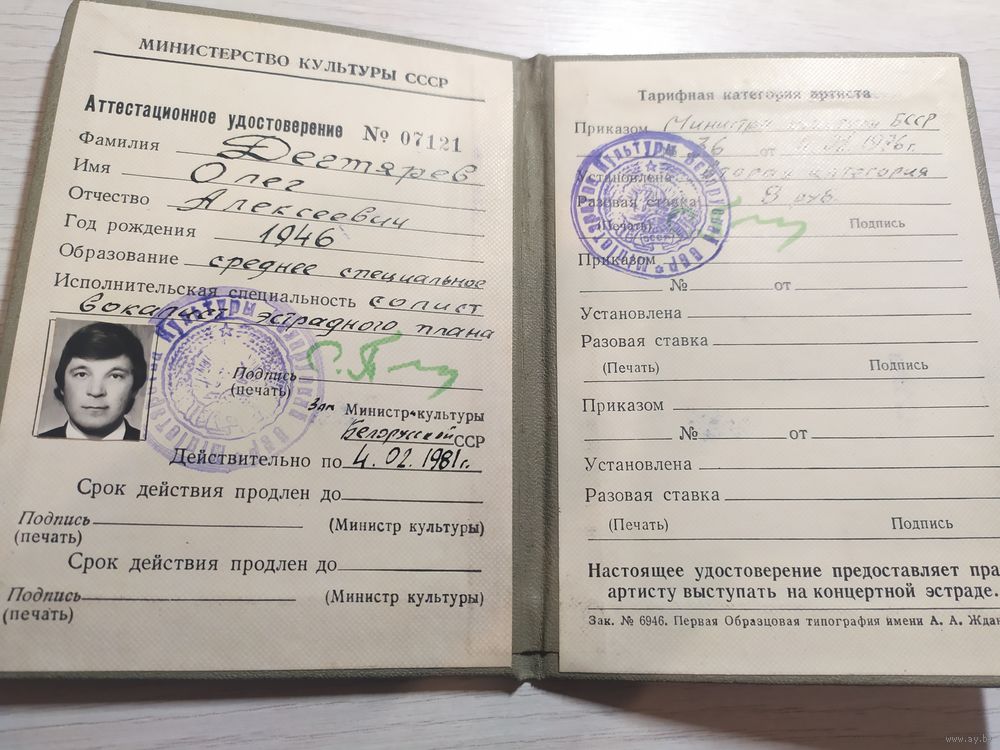 МИНИСТЕРСТВО КУЛЬТУРЫ СССР
Аттестационное удостоверение № 07121
Фамилия Дегтярев
Имя Олег
Отчество Алексеевич
Год рождения 1946
Образование среднее специальное
Исполнительская специальность солист
вокалист эстрадного плана
Подпись
(печать)
Зам Министр культуры
Белорусской ССР
Действительно по 4.02.1981г.
Срок действия продлен до
Подпись (Министр культуры)
(печать)
Срок действия продлен до
Подпись (Министр культуры)
(печать)
Тарифная категория артиста
Приказом Министра культуры БССР
36 от 1976г.
Установлена вторая категория
Разовая ставка 8 руб.
(Печать) Подпись
Приказом
№ от
Установлена
Разовая ставка
(Печать) Подпись
Приказом
№ от
Установлена
Разовая ставка
(Печать) Подпись
Настоящее удостоверение предоставляет пра
артисту выступать на концертной эстраде.
Зак. № 6946. Первая Образцовая типография имени А. А. Ждан
www.ay.by